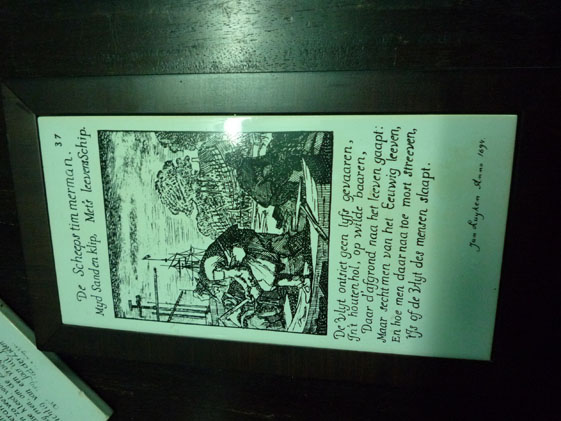 37
De Scheepstimmerman.
Myd Sand en klip, Met's leevens Schip.
De Vlyt ontziet geen lyfs gevaaren,
In't houten hol, op wilde baaren,
Daar d'afgrond naa het leeven gaapt:
Maar sechtmen van het Eeuwig leeven,
En hoe men daar naa toe most streeven,
't Is of de Vlyt des mensen slaapt.
Jan Luyken Anno 1694.